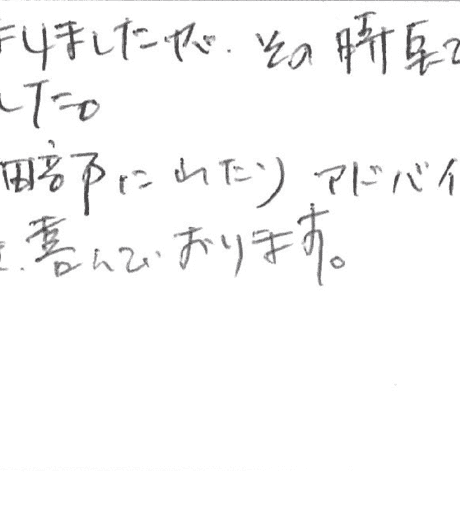 まりましたが、その時点で
した。
細部にわたりアドバイ
喜んでおります。